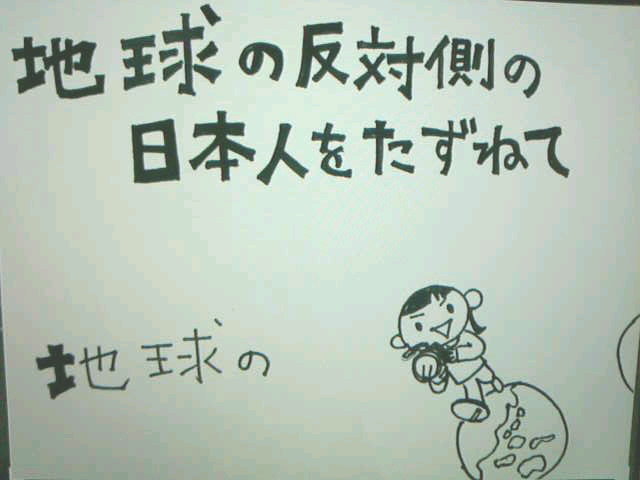 地球の反対側の
日本人をたずねて
地球の